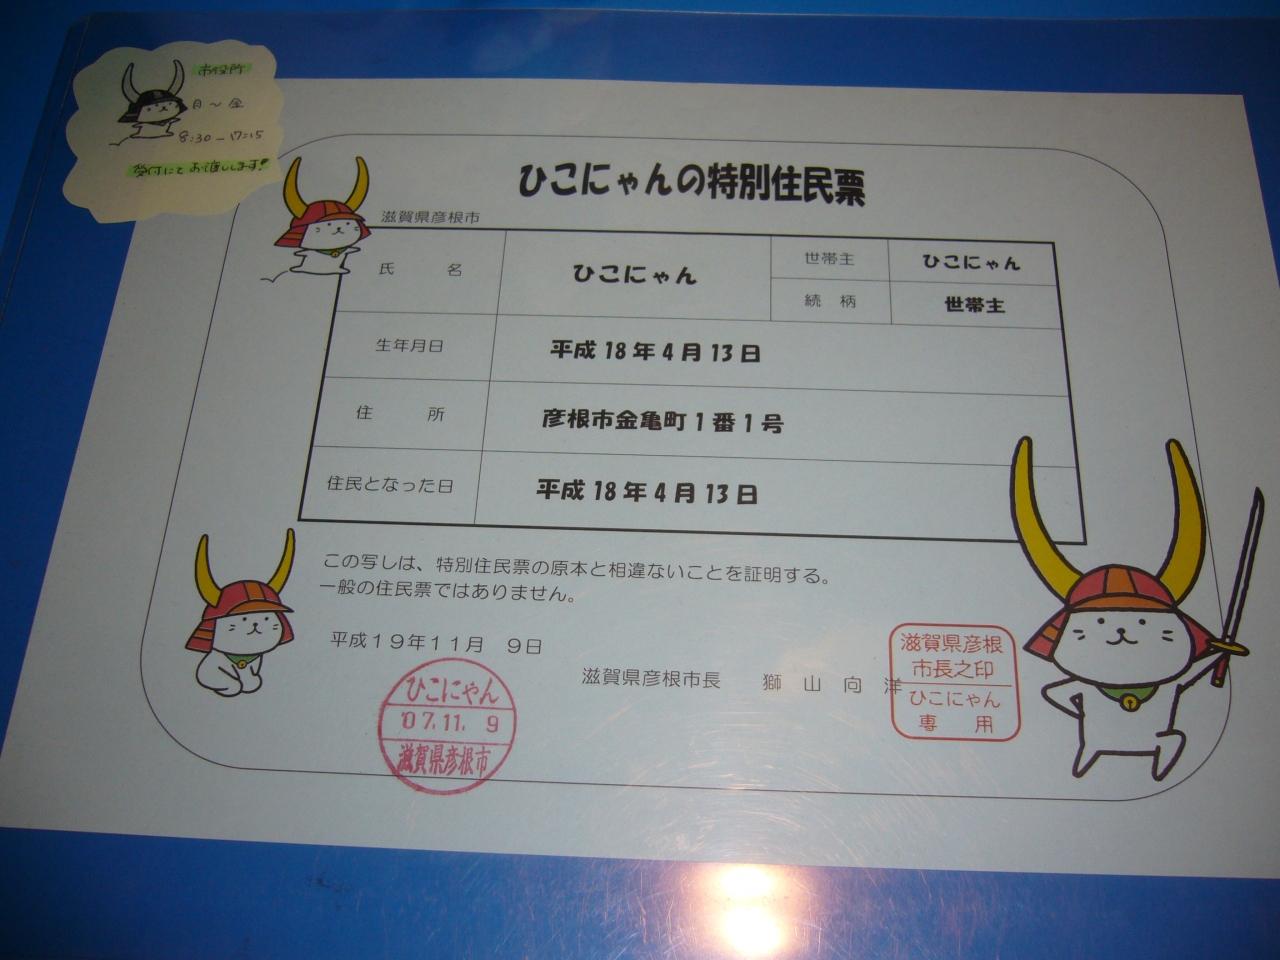 市役所
月〜金
8:30-17:15
受付にてお渡しします!
ひこにゃんの特別住民票
滋賀県彦根市
氏 名
ひこにゃん
世帯主
ひこにゃん
続 柄
世帯主
生年月日
平成18年4月13日
住 所
彦根市金亀町1番1号
住民となった日
平成18年4月13日
この写しは、特別住民票の原本と相違ないことを証明する。
一般の住民票ではありません。
平成19年11月 9日
滋賀県彦根市長 獅 山 向 洋
滋賀県彦根
市長之印
ひこにゃん
専 用
ひこにゃん
'07.11. 9
滋賀県彦根市